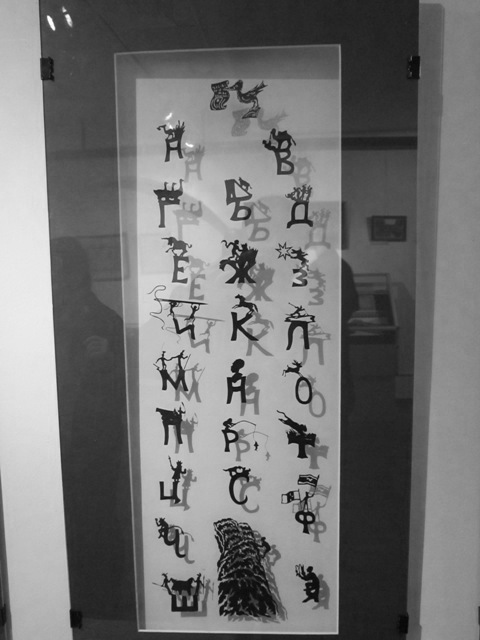 А В
Г Б Д
Е Ж З
И К Л
М Н О
П Р Т
Ц С Ф
Ч
Ш Я